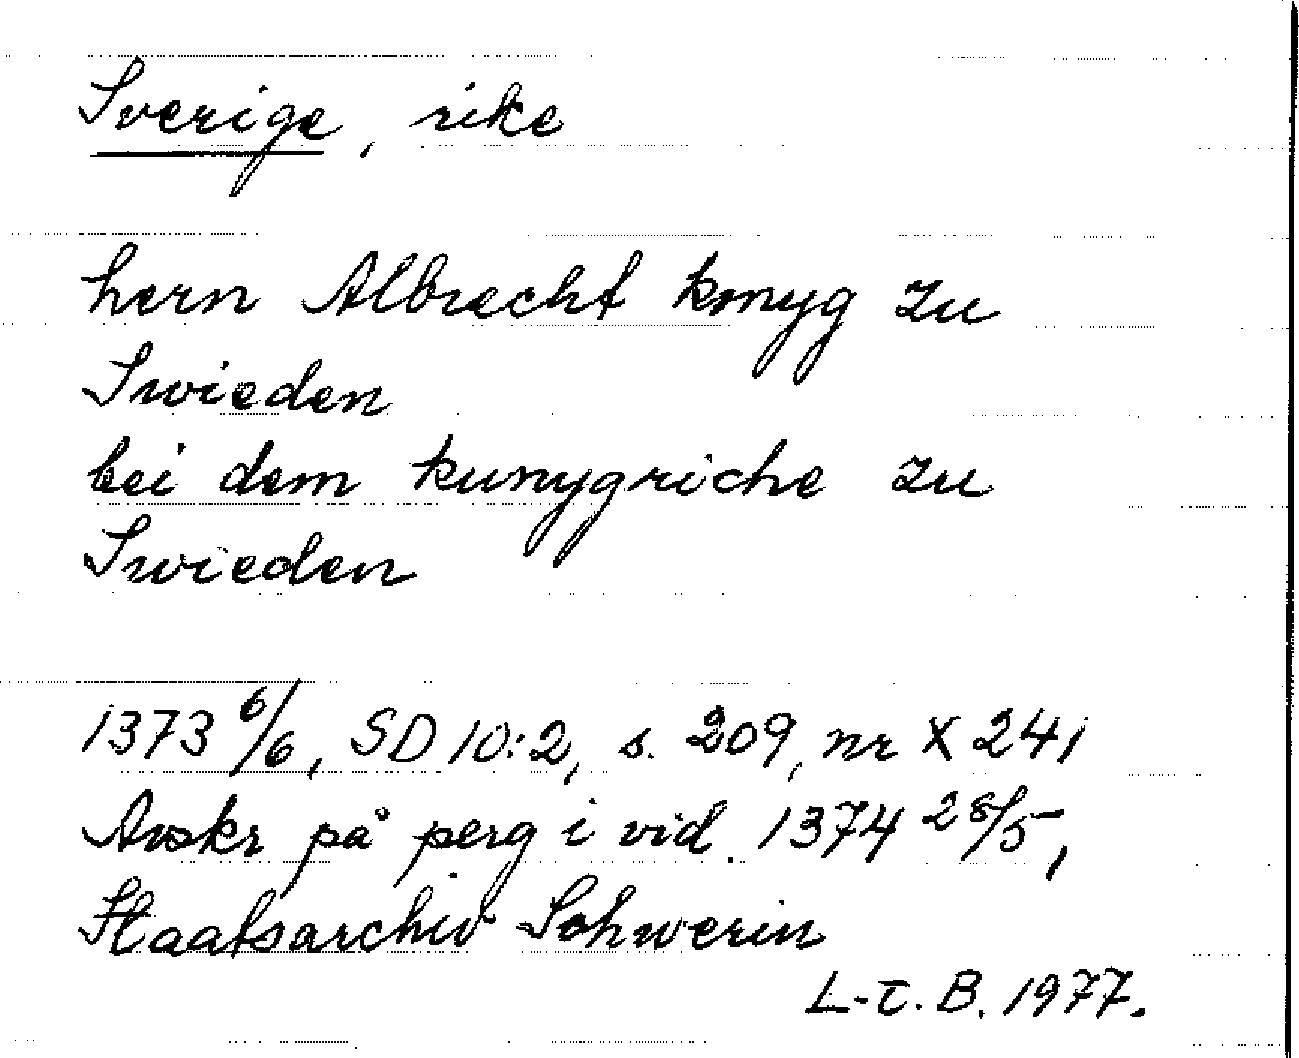 Sverige, rike
hern Albrecht kmyg zu
Swieden
bei dem kunygriche zu
Swieden
1373 6/6, SD 10:2, s. 209, nr X 241
Avskr på perg i vid. 1374 28/5,
Staatsarchiv Schwerin
L-E. B. 1977.